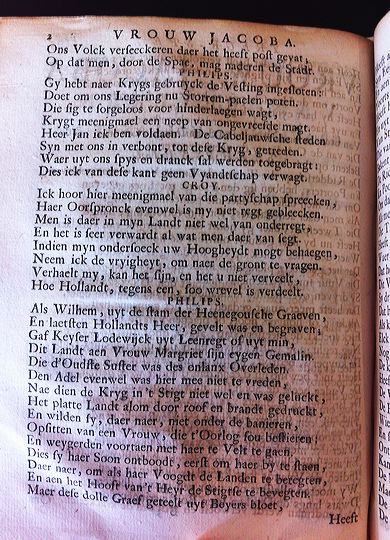 2 VROUW JACOBA.
Ons Volck verseeckeren daer het heeft post gevat,
Op dat men, door de Spae, mag naderen de Stadt.
PHILIPS.
Gy hebt naer Krygs gebruyck de Vesting ingesloten:
Doet om ons Legering nu Storrem-paelen poten.
Die sig te sorgeloos voor hinderlaegen wagt,
Krygt meenigmael een neep van ongevreesde magt.
Heer Jan ick ben voldaen. De Cabeljauwsche steden
Syn met ons in verbont, tot dese Kryg, getreden.
Waer uyt ons spys en dranck sal werden toegebragt:
Dies ick van dese kant geen Vyandtschap verwagt.
CROY.
Ick hoor hier meenigmael van die partyschap spreecken,
Haer Oorspronck evenwel is my niet regt gebleecken.
Men is daer in myn Landt niet wel van onderregt,
En het is seer verwardt al wat men daer van segt.
Indien myn ondersoeck uw Hoogheydt mogt behaegen,
Neem ick de vryigheyt, om naer de gront te vragen.
Verhaelt my, kan het sijn, en het u niet verveelt,
Hoe Hollandt, tegens een, soo wrevel is verdeelt.
PHILIPS.
Als Wilhem, uyt de stam der Heenegousche Graeven,
En laetsten Hollandts Heer, gevelt was en begraven;
Gaf Keyser Lodewijck uyt Leenregt of uyt min,
Dit Landt aen Vrouw Margriet sijn eygen Gemalin.
Die d'Oudste Suster was des onlanx Overleden.
Den Adel evenwel was hier mee niet te vreden,
Nae dien de Kryg in 't Stigt niet wel en was geluckt,
Het platte Landt alom door roof en brandt gedruckt,
En wilden sy, daer naer, niet onder de banieren,
Opsitten van een Vrouw, die t'Oorlog sou bestieren;
En weygerden voortaen met haer te Velt te gaen.
Dies sy haer Soon ontboodt, eerst om haer by te staen,
Daer naer, om als haer Voogdt de Landen te beregten,
En aen het Hooft van 't Heyr de Stigtse te bevegten.
Maer dese dolle Graef geteelt uyt Beyers bloet,
Heeft